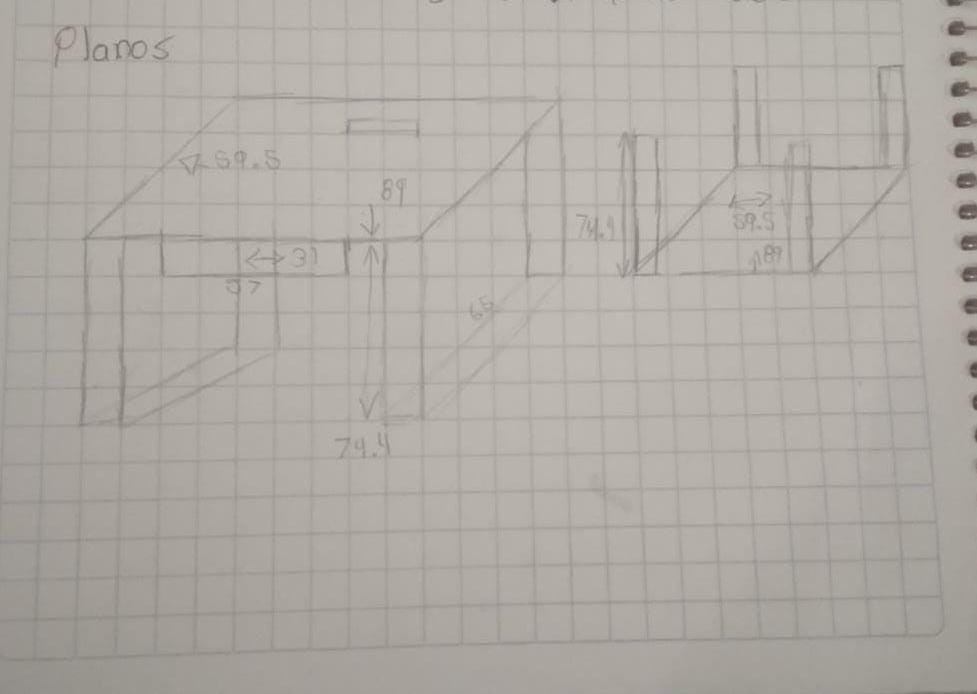 Planos
59.5
89
31
37
65
74.4
74.4
59.5
89